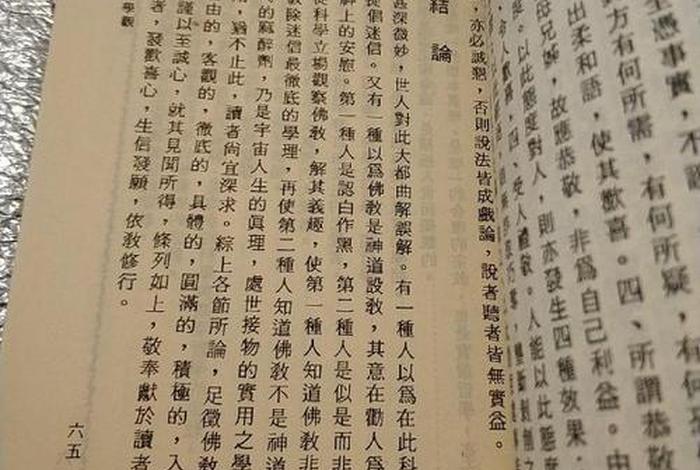 憑事實，不
方有何所需，有何所疑，有何
出柔和語，使其歡喜。四、所謂恭敬
故應恭敬，非爲自己利益。由
以此態度對人，則亦發生四種效果：
四、受人禮敬。人能以此態度
，亦必誠懇，否則說法皆成戲論，說者聽者皆無實益。
結論
甚深微妙，世人對此大都曲解誤解。有一種人以爲在此科
提倡迷信。又有一種以爲佛敎是神道設敎，其意在勸人爲
解上的安慰。第一種人是認白作黑，第二種人是似是而非
從科學立場觀察佛敎，解其義趣，使第一種人知道佛敎非
破除迷信最徹底的學理，再使第二種人知道佛敎不是神道
的麻醉劑，乃是宇宙人生的眞理，處世接物的實用之學
，猶不止此，讀者尙宜深求。綜上各節所論，足徵佛敎
由的，客觀的，徹底的，具體的，圓滿的，積極的，入
謹以至誠心，就其見聞所得，條列如上，敬奉獻於讀者
者，發歡喜心，生信發願，依敎修行。
學觀
六五